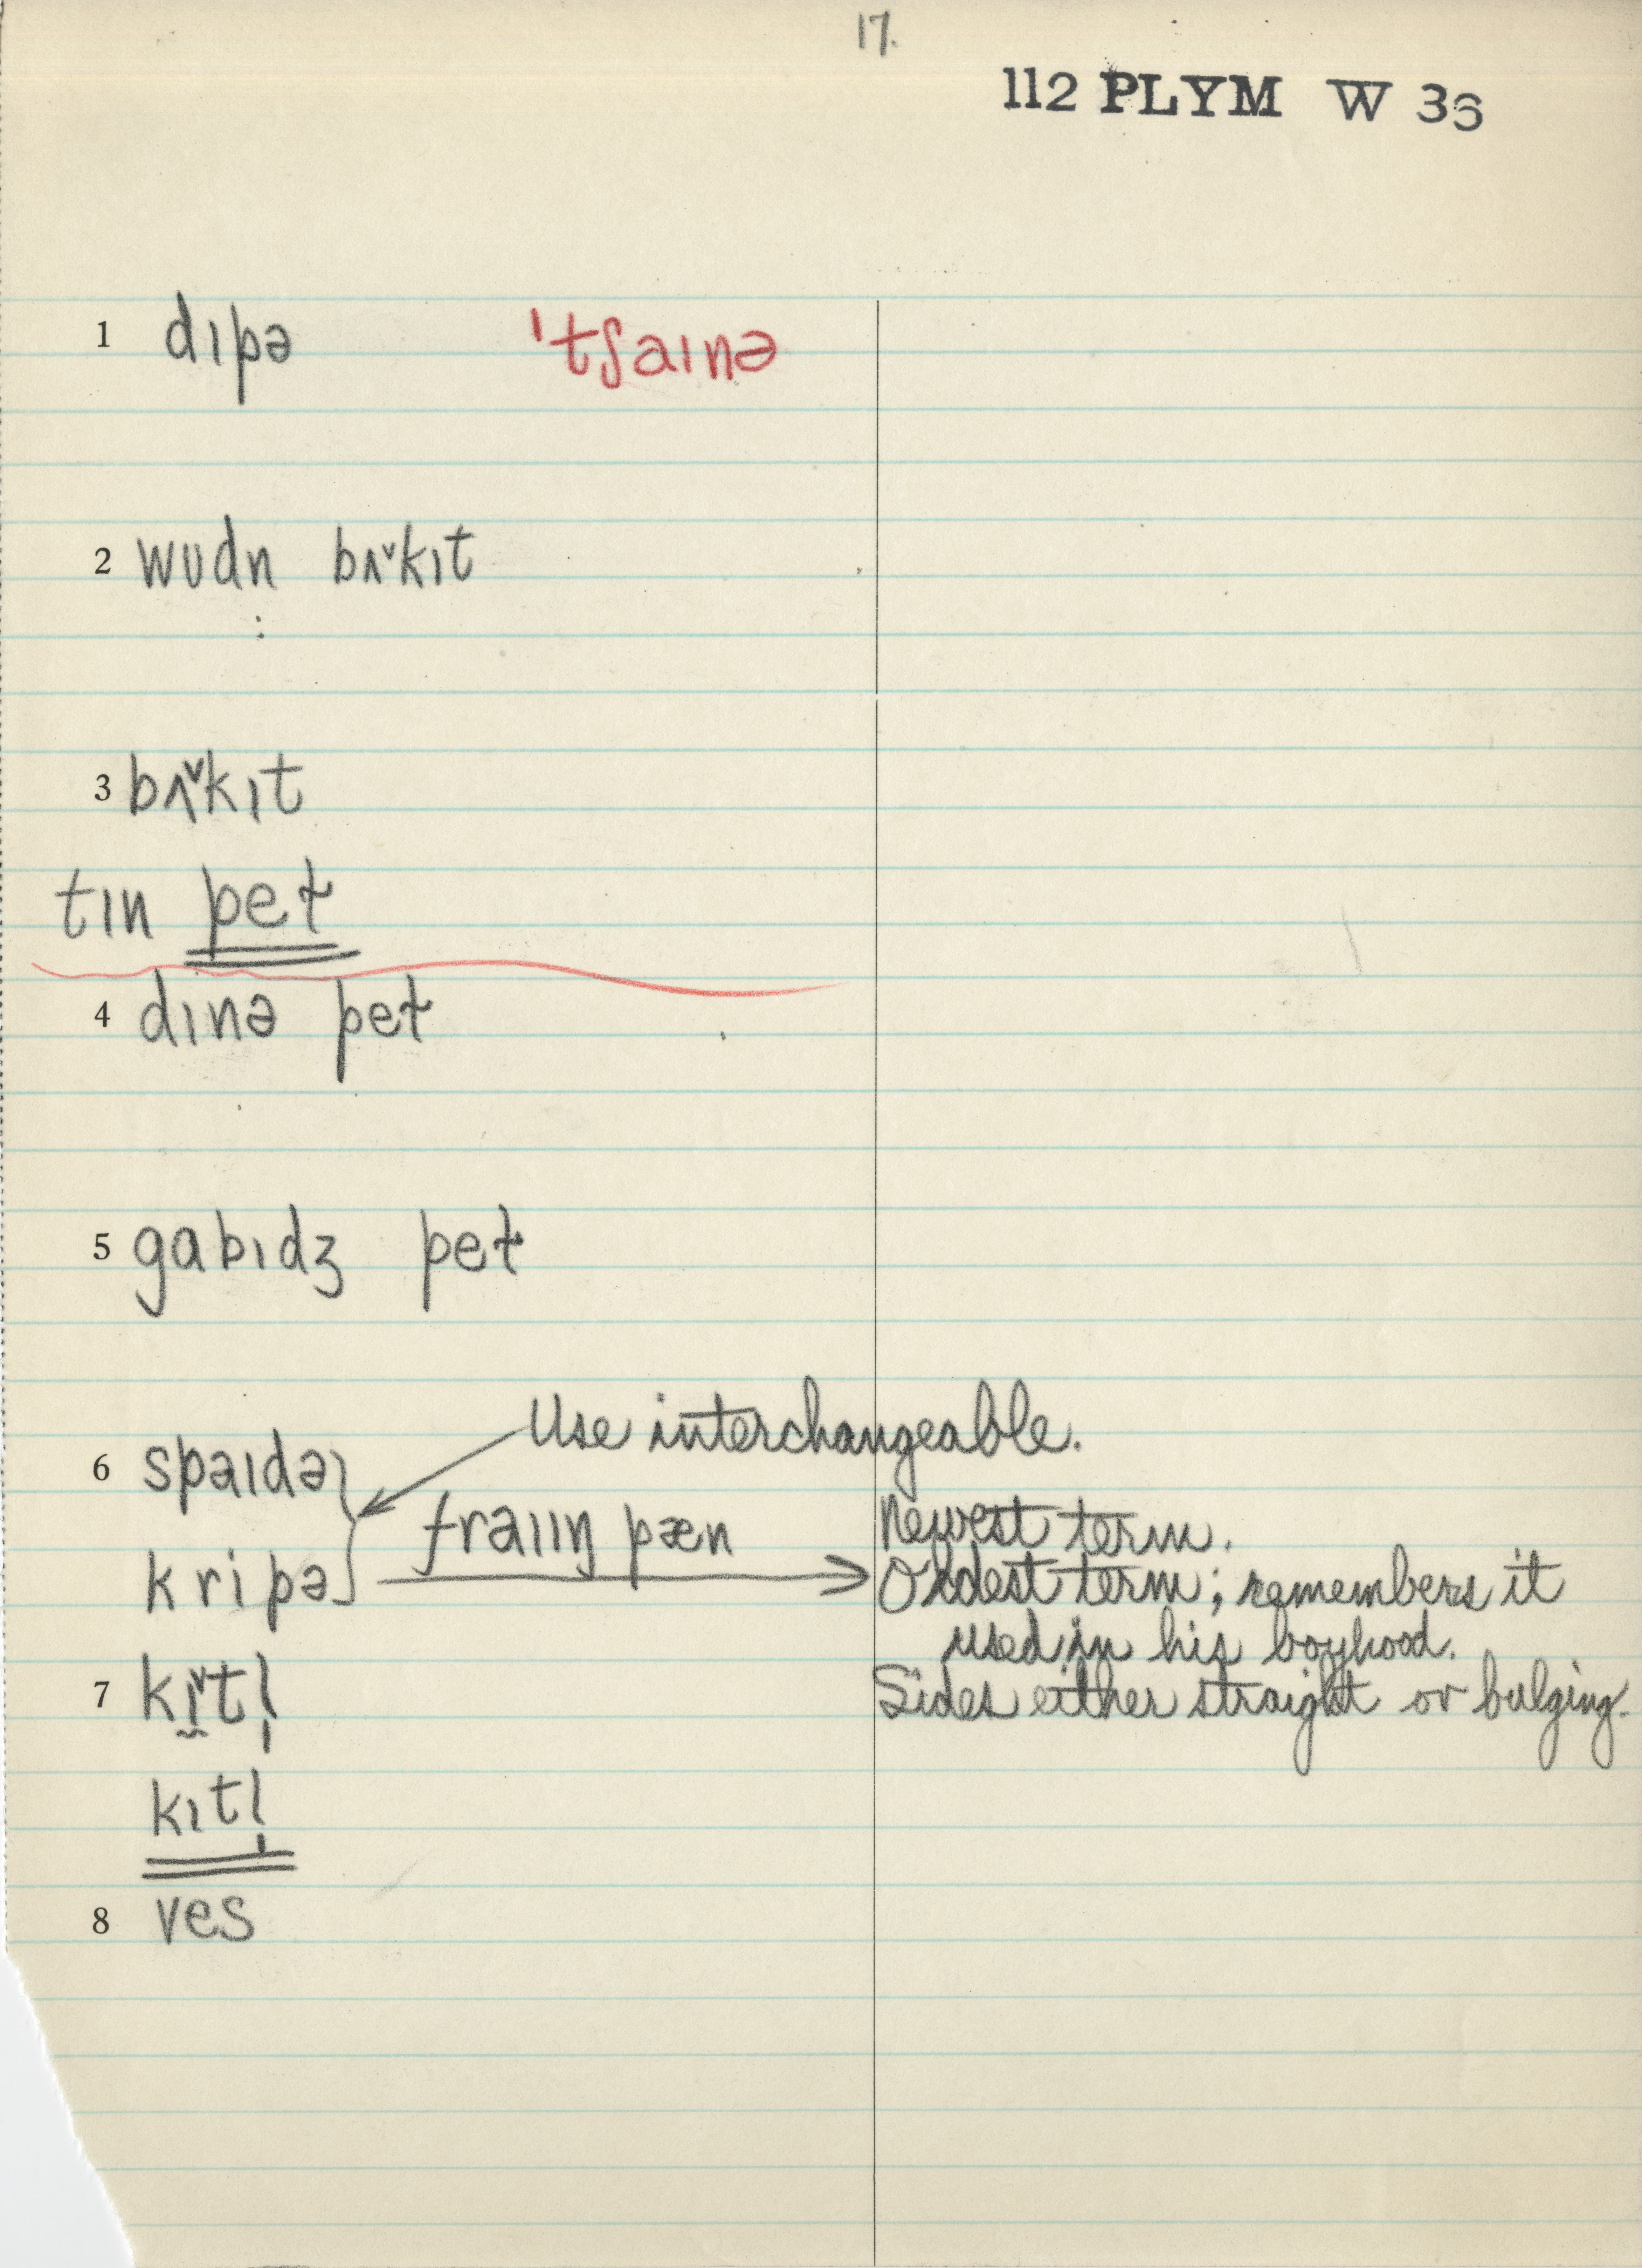 17.
112 PLYM W 36
1 dɪpə ˈtʃaɪnə
2 wʊdn̩ bʌ˅kɪt
3 bʌ˅kɪt
tɪn peɫ
4 dɪnə peɫ
5 gabɪdʒ peɫ
Use interchangeable.
6 spaɪdə
fraɪɪŋ pæn Newest term.
kripə Oldest term; remembers it
used in his boyhood.
7 kɪ̯˅tl̩ Sides either straight or bulging.
kɪtl̩
8 ves